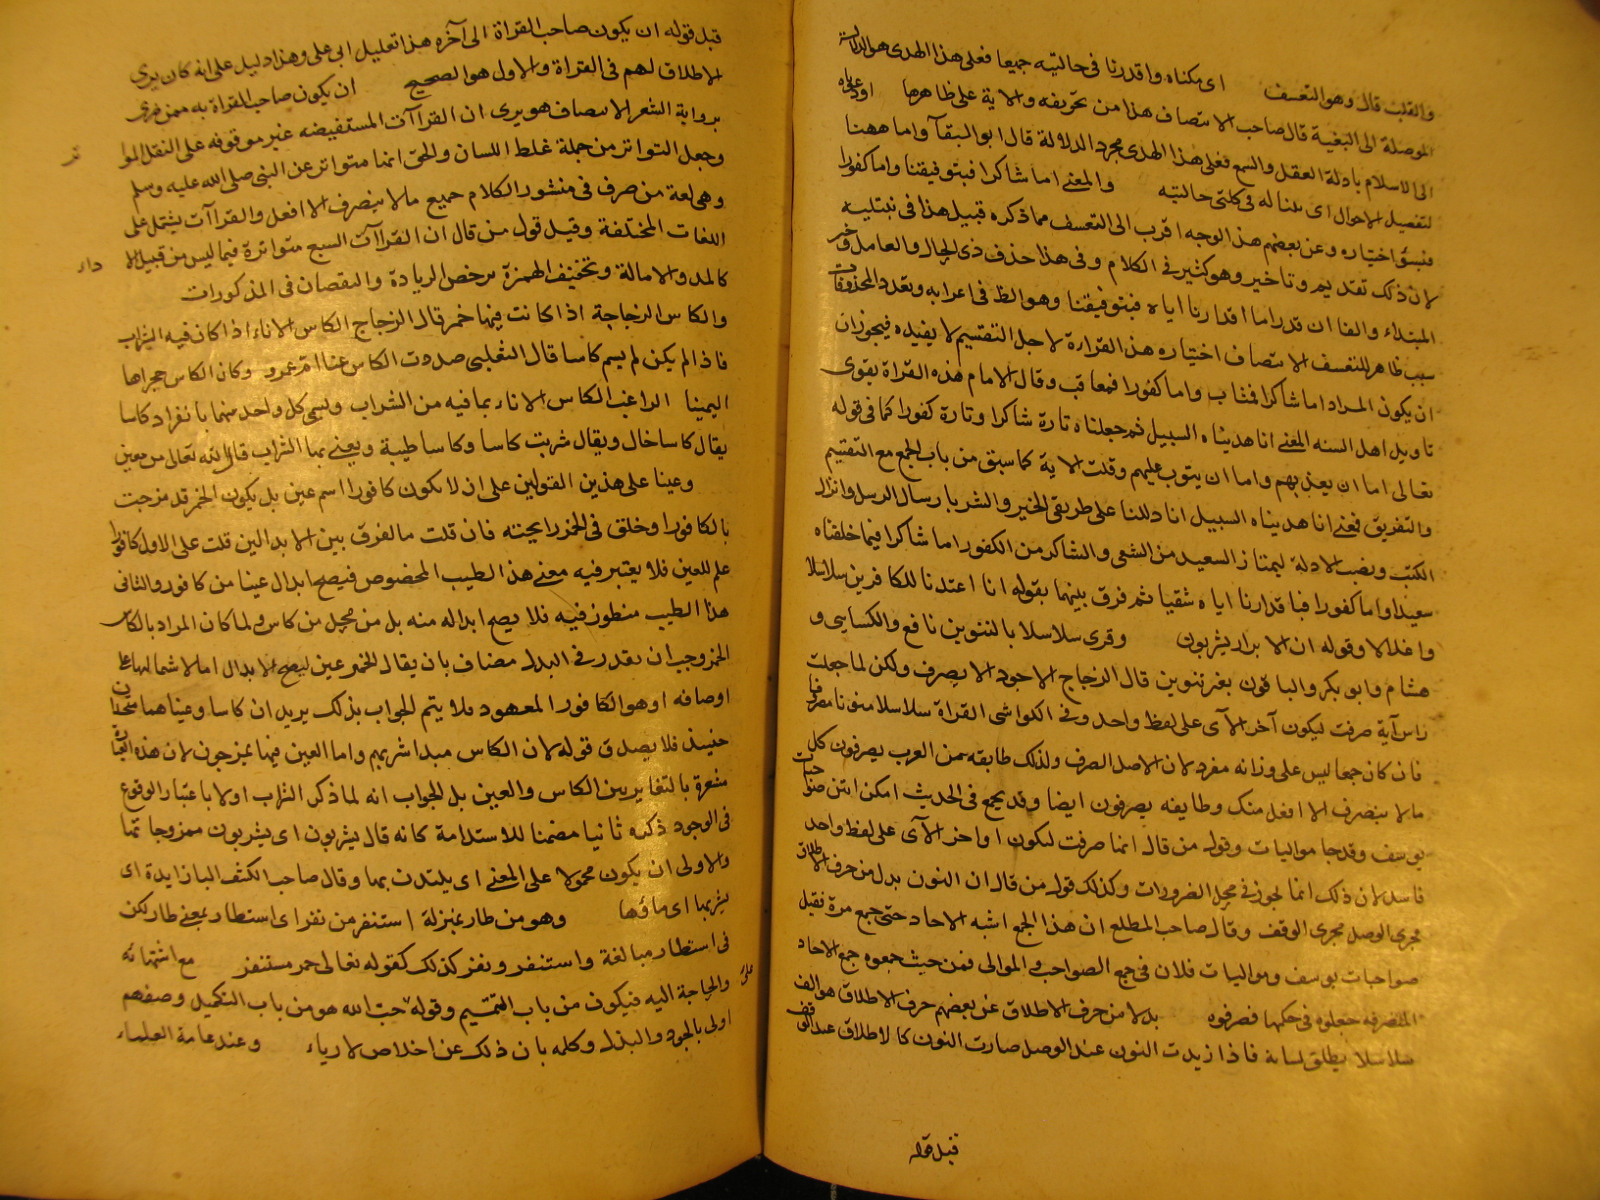 والقلب قال وهو التعسف اى مكناه واقدرنا فى حالتيه جميعا فعلى هذا الهدى هو الدلالة
الموصلة الى البغية قال صاحب الانتصاف هذا من تحريفه والاية على ظاهرها او دعاه
الى الاسلام بادلة العقل والسمع فعلى هذا الهدى مجرد الدلالة قال ابو البقآ واما ههنا
لتفصيل الاحوال اى هديناله فى كلتى حالتيه والمعنى اما شاكرا فبتوفيقنا واما كفورا
فبسوء اختياره وعن بعضهم هذا الوجه اقرب الى التعسف مما ذكره قبيل هذا فى نبتليه
لان ذلك تقديم وتاخير وهو كثير فى الكلام وفى هذا حذف ذى الحال والعامل وخبر
المبتداء والفا ان قدر اما اقدارنا اياه فبتوفيقنا وهو الظ فى اعرابه وتعدد المحذوفات
سبب ظاهر للتعسف الانتصاف اختياره هذا القراءة لاجل التقسيم لا يفيده فيجوز ان
ان يكون المراد اما شاكرا فمثاب واما كفورا فمعاقب وقال الامام هذه القراة يقوى
تاويل اهل السنه المعنى انا هديناه السبيل ثم جعلناه تارة شاكرا وتارة كفورا كما فى قوله
تعالى اما ان يعذبهم واما ان يتوب عليهم وقلت الاية كما سبق من باب الجمع مع التقسيم
والتفريق فمعنى انا هديناه السبيل انا دللنا على طريقى الخير والشر بارسال الرسل وانزال
الكتب ونصب الادلة ليمتاز السعيد من الشقى والشاكر من الكفور اما شاكرا فيما خلقناه
سعيدا واما كفورا فبا قدارنا اياه شقيا ثم فرق بينهما بقوله انا اعتدنا للكافرين سلاسلا
واغلالا وقوله ان الابرار يشربون وقرى سلاسلا بالتنوين نافع والكسايى و
هشام وابو بكر والباقون بغير تنوين قال الزجاج الاجود الا يصرف ولكن لما جعلت
راس آية صرفت ليكون آخر الآى على لفظ واحد وفى الكواشى القراة سلاسلا منونا مصرفا
فان كان جمعا ليس على وزانه مفرد لان الاصل الصرف ولذلك طايفه من العرب يصرفون كل
مالا ينصرف الا افعل منك وطايفه يصرفون ايضا وقد يجمع فى الحديث امكن انتن صواحبات
يوسف وقد جا مواليات وقول من قال انما صرفت لتكون اواخر الآى على لفظ واحد
فاسد لان ذلك انما لجوز فى محل الضرورات وكذلك قول من قال ان النون بدل من حرف الاطلاق
مجرى الوصل مجرى الوقف وقال صاحب المطلع ان هذا الجمع اشبه الاحاد حتى جمع مرة فقيل
صواحبات يوسف ومواليات فلان فى جمع الصواحب والموالى فمن حيث جمعوه جمع الاحاد
المنصرفه جعلوه فى حكمها فصرفوه بدلا من حرف الاطلاق عن بعضهم حرف الاطلاق هو الف
سلاسلا يطلق لسانه فاذا زيدت النون عند الوصل صارت النون كالاطلاق عند الوقف
قبل قوله
قبل قوله ان يكون صاحب القراة الى آخره هذا تعليل ابى على وهذا دليل على انه كان يرى
الاطلاق لهم فى القراة والاول هو الصحيح ان يكون صاحب القراة به ممن ضرى
برواية الشعر الانتصاف هو يرى ان القراآت المستفيضه غير موقوفه على النقل المتوا
تر
وجعل التواتر من جملة غلط اللسان والحق انها متواتر عن النبى صلى الله عليه وسلم
وهى لغة من صرف فى منشور الكلام جميع مالا ينصرف الا افعل والقراآت يشتمل على
اللغات المختلفة وقيل قول من قال ان القراآت السبع متواترة فيما ليس من قبيل الا
داء
كالمد والامالة وتخفيف الهمزة يرخص الزيادة والنقصان فى المذكورات
والكاس الزجاجة اذا كانت فيها خمر قال الزجاج الكاس الاناء اذا كان فيه الشراب
فاذا لم يكن لم يسم كاسا قال التغلبى صددت الكاس عنا ام عمرو وكان الكاس مجراها
اليمينا الراغب الكاس الاناء بما فيه من الشراب ويسمى كل واحد منهما بانفراد كاسا
يقال كاسا خال ويقال شربت كاسا وكاسا طيبة ويعنى بها الشراب قال الله تعالى من معين
وعينا على هذين القولين على ان لا يكون كافورا اسم عين بل يكون الخمر قد مزجت
بالكافور او خلق فى الخمر رايحته فان قلت ما الفرق بين الابدالين قلت على الاول كافورا
علم للعين فلا يعتبر فيه معنى هذا الطيب المخصوص فيصح ابدال عينا من كافور والثانى
هذا الطيب منظور فيه فلا يصح ابداله منه بل من محل من كاس ولما كان المراد بالكاس
الخمر وجب ان يقدر فى البدل مضاف بان يقال الخمر عين ليصح الابدال اما لاشمالها على
اوصافه او هو الكافور المعهود فلا يتم الجواب بذلك يريد ان كاسا وعينا هما متحدان
حنيئذ فلا يصدق قوله لان الكاس مبدا شربهم واما العين فيها يمزجون لان هذه العبارة
مشعرة بالتغاير بين الكاس والعين بل الجواب انه لما ذكر الشراب اولا باعتبار الوقوع
فى الوجود ذكره ثانيا مضمنا للاستدامة كانه قال يشربون اى يشربون ممزوجا بها
والاولى ان يكون محمولا على المعنى اى يلتذن بها وقال صاحب الكشف البا زايدة اى
يشربها اى ماؤها وهو من طار بمنزلة استنفر من نفر اى استطار بمعنى طار لكن
فى استطار مبالغة واستنفر ونفر كذلك كقوله تعالى حمر مستنفر مع اشتهائه
والحاجة اليه فيكون من باب التتميم وقوله على حب الله هو من باب التكميل وصفهم
اولى بالجود والبذل وكلمه بان ذلك عن اخلاص لا رياء وعند عامة العلماء